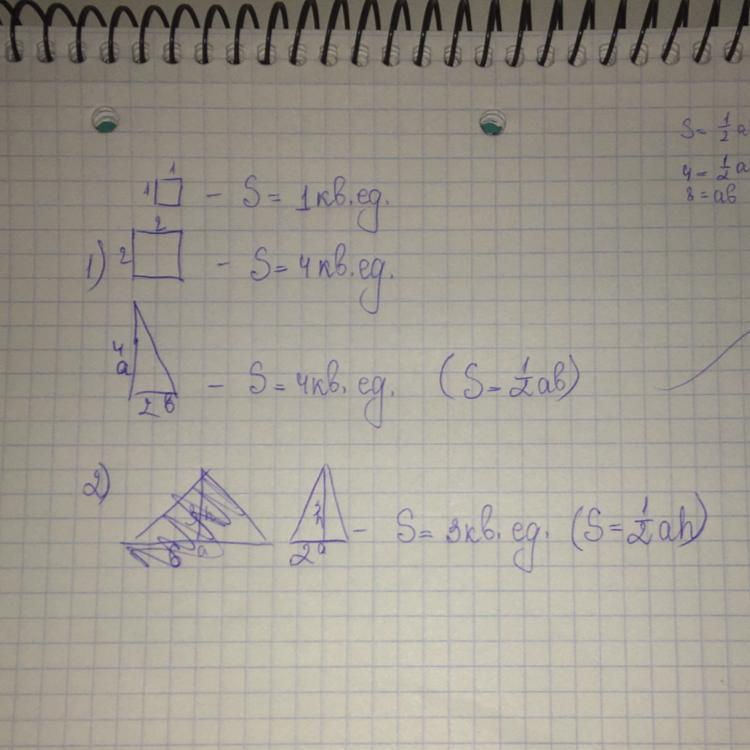 S = 1/2 a
4 = 1/2 a
8 = ab
1
1 - S = 1 кв. ед.
2
1) 2 - S = 4 кв. ед.
4
a - S = 4 кв. ед. (S = 1/2 ab)
2 b
2) 3 h - S = 3 кв. ед. (S = 1/2 ah)
2 a